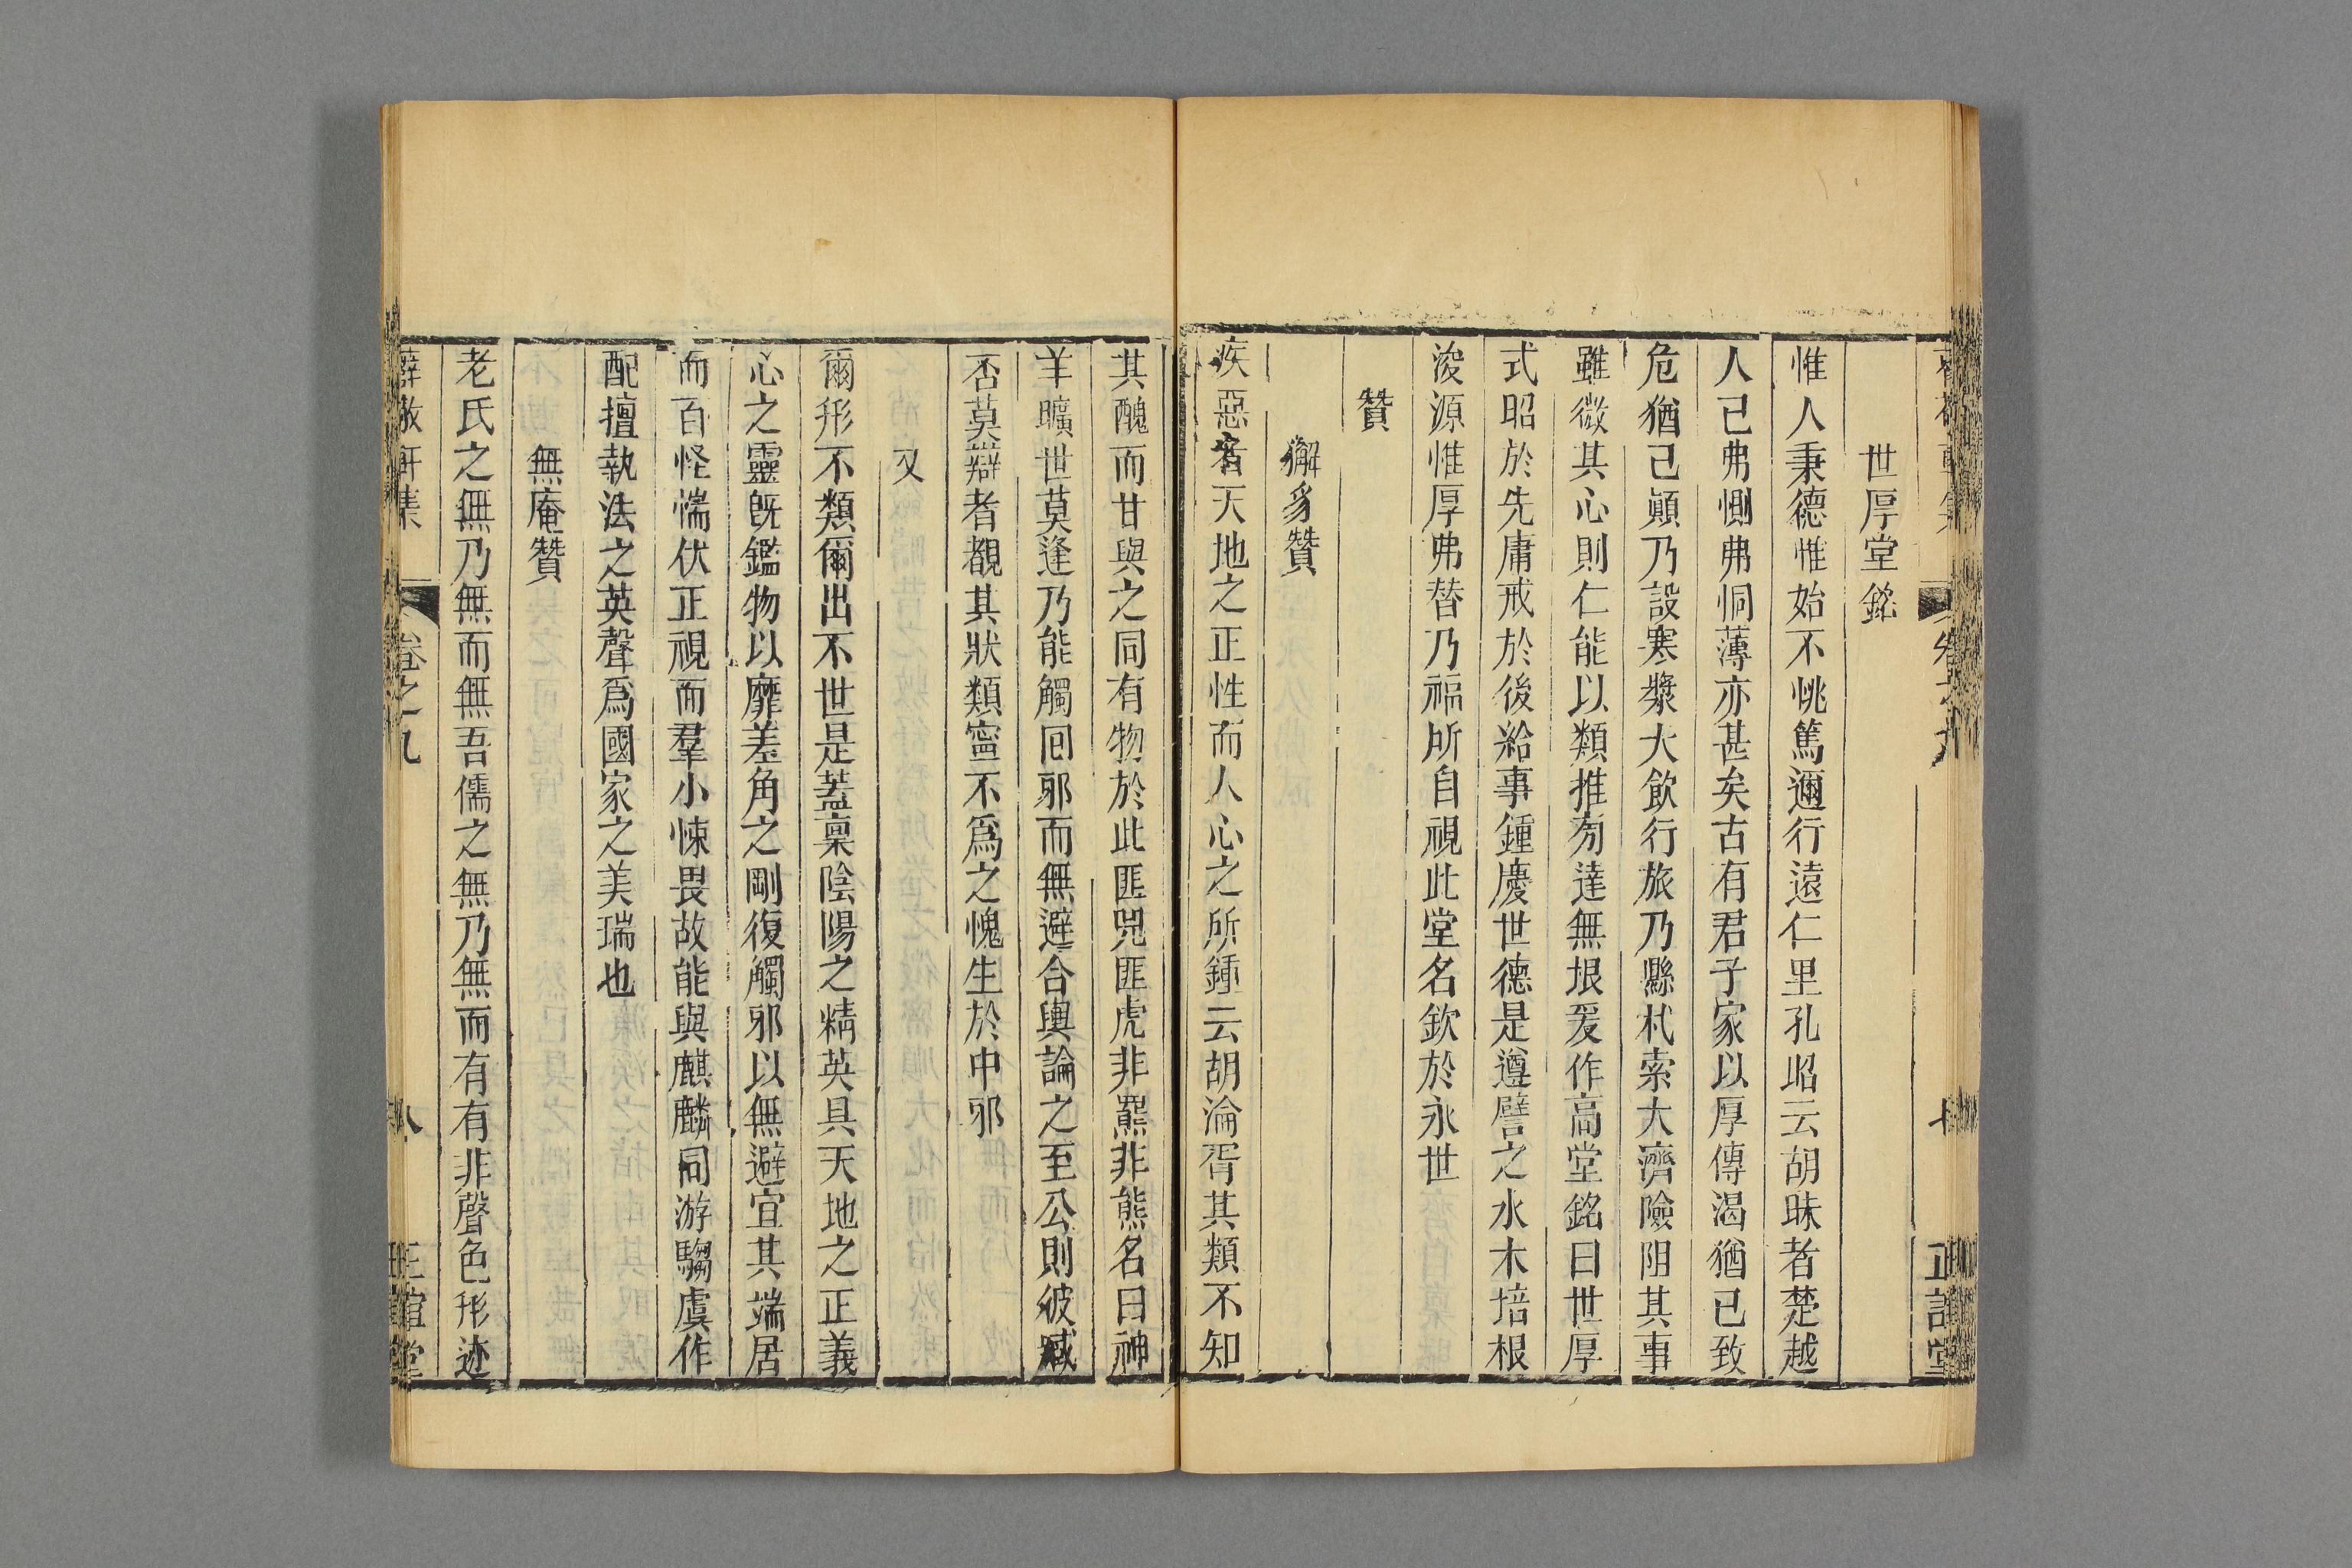 世厚堂銘
惟人秉德惟始不恌篤邇行遠仁里孔昭云胡昧者楚越
人己弗惻弗恫薄亦甚矣古有君子家以厚傳渴猶己致
危猶己顚乃設寒漿大飲行旅乃縣杙索大濟險阻其事
雖微其心則仁能以類推㫄達無垠爰作高堂銘曰世厚
式昭於先庸戒於後給事鍾慶世德是遵譬之水木培根
浚源惟厚弗替乃福所自視此堂名欽於永世
贊
獬豸贊
疾惡者天地之正性而人心之所鍾云胡淪胥其類不知
其醜而甘與之同有物於此匪兕匪虎非羆非熊名曰神
羊曠世莫逢乃能觸囘邪而無避合輿論之至公則彼臧
否莫辯者覩其狀類寧不爲之愧生於中邪
又
爾形不類爾出不世是蓋稟陰陽之精英具天地之正義
心之靈旣鑑物以靡差角之剛復觸邪以無避宜其端居
而百怪惴伏正視而羣小悚畏故能與麒麟同游騶虞作
配擅執法之英聲爲國家之美瑞也
無庵贊
老氏之無乃無而無吾儒之無乃無而有有非聲色形迹
薛敬軒集
卷之九
八
正誼堂